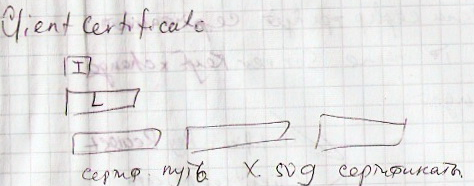 Client Certificate
I
L
серт. путь X. 509 сертификаты